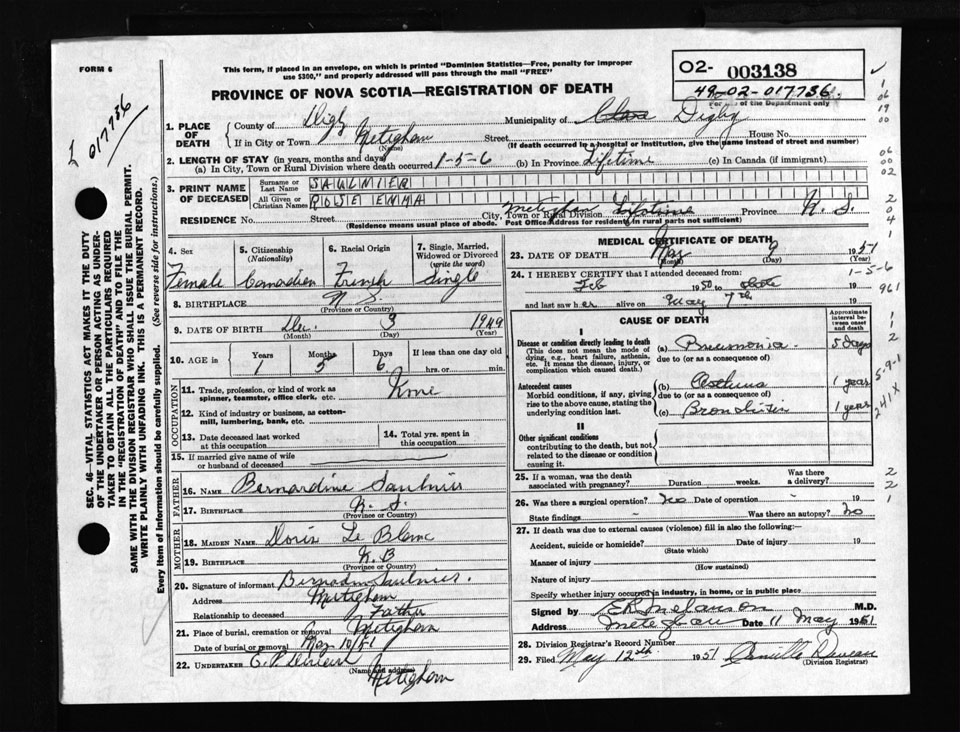 FORM 6
This form, if placed in an envelope, on which is printed "Dominion Statistics—Free, penalty for improper
use $300," and properly addressed will pass through the mail "FREE"
PROVINCE OF NOVA SCOTIA—REGISTRATION OF DEATH
02- 003138
49-02-017736
of the Department only
1 017736
1. PLACE OF DEATH
County of Digby Municipality of Clare Digby
If in City or Town Meteghan Street House No.
(Name) (If death occurred in a hospital or institution, give the name instead of street and number)
2. LENGTH OF STAY (in years, months and days)
(a) In City, Town or Rural Division where death occurred 1-5-6 (b) In Province Lifetime (c) In Canada (if immigrant)
3. PRINT NAME OF DECEASED
Surname or Last Name SAULNIER
All Given or Christian Names ROSE EMMA
RESIDENCE No. Street City, Town or Rural Division Meteghan Lifetime Province N. S.
(Residence means usual place of abode. Post Office Address for residents in rural parts not sufficient)
4. Sex Female
5. Citizenship (Nationality) Canadian
6. Racial Origin French
7. Single, Married, Widowed or Divorced (write the word) Single
8. BIRTHPLACE N S.
(Province or Country)
9. DATE OF BIRTH Dec. 3 1949
(Month) (Day) (Year)
10. AGE in Years 1 Months 5 Days 6 If less than one day old
hrs. or min.
OCCUPATION
11. Trade, profession, or kind of work as spinner, teamster, office clerk, etc. None
12. Kind of industry or business, as cotton-mill, lumbering, bank, etc.
13. Date deceased last worked at this occupation
14. Total yrs. spent in this occupation
15. If married give name of wife or husband of deceased
FATHER
16. NAME Bernardine Saulnier
17. BIRTHPLACE N. S.
(Province or Country)
MOTHER
18. MAIDEN NAME Doris Le Blanc
19. BIRTHPLACE N. B
(Province or Country)
20. Signature of informant Bernadin Saulnier.
Address Meteghan
Relationship to deceased Father
21. Place of burial, cremation or removal Meteghan
Date of burial or removal May 10/51
22. UNDERTAKER E. P.
(Name and address) Meteghan
MEDICAL CERTIFICATE OF DEATH
23. DATE OF DEATH May 9 1951
(Month) (Day)
24. I HEREBY CERTIFY that I attended deceased from:
Feb 1950 to date
and last saw her alive on May 7th
CAUSE OF DEATH
Approximate interval between onset and death
I
Disease or condition directly leading to death
(This does not mean the mode of dying, e.g., heart failure, asthenia, etc. It means the disease, injury, or complication which caused death.)
(a) Pneumonia 5 days
due to (or as a consequence of)
Antecedent causes
Morbid conditions, if any, giving rise to the above cause, stating the underlying condition last.
(b) Asthma 1 years
due to (or as a consequence of)
(c) Bronchitis 1 years
II
Other significant conditions
contributing to the death, but not related to the disease or condition causing it.
25. If a woman, was the death associated with pregnancy? Duration weeks. Was there a delivery?
26. Was there a surgical operation? No Date of operation 19
State findings Was there an autopsy? No
27. If death was due to external causes (violence) fill in also the following:—
Accident, suicide or homicide? Date of injury 19
(State which)
Manner of injury
(How sustained)
Nature of injury
Specify whether injury occurred in industry, in home, or in public place
Signed by Melanson M.D.
Address Meteghan Date 11 May 1951
28. Division Registrar's Record Number
29. Filed May 12th 1951 Camille
(Division Registrar)
1-5-6
961
5-9-1
241X
SEC. 46—VITAL STATISTICS ACT MAKES IT THE DUTY
OF THE UNDERTAKER OR PERSON ACTING AS UNDER-
TAKER TO OBTAIN ALL THE PARTICULARS REQUIRED
IN THE "REGISTRATION OF DEATH" AND TO FILE THE
SAME WITH THE DIVISION REGISTRAR WHO SHALL ISSUE THE BURIAL PERMIT.
WRITE PLAINLY WITH UNFADING INK. THIS IS A PERMANENT RECORD.
Every item of information should be carefully supplied. (See reverse side for instructions.)